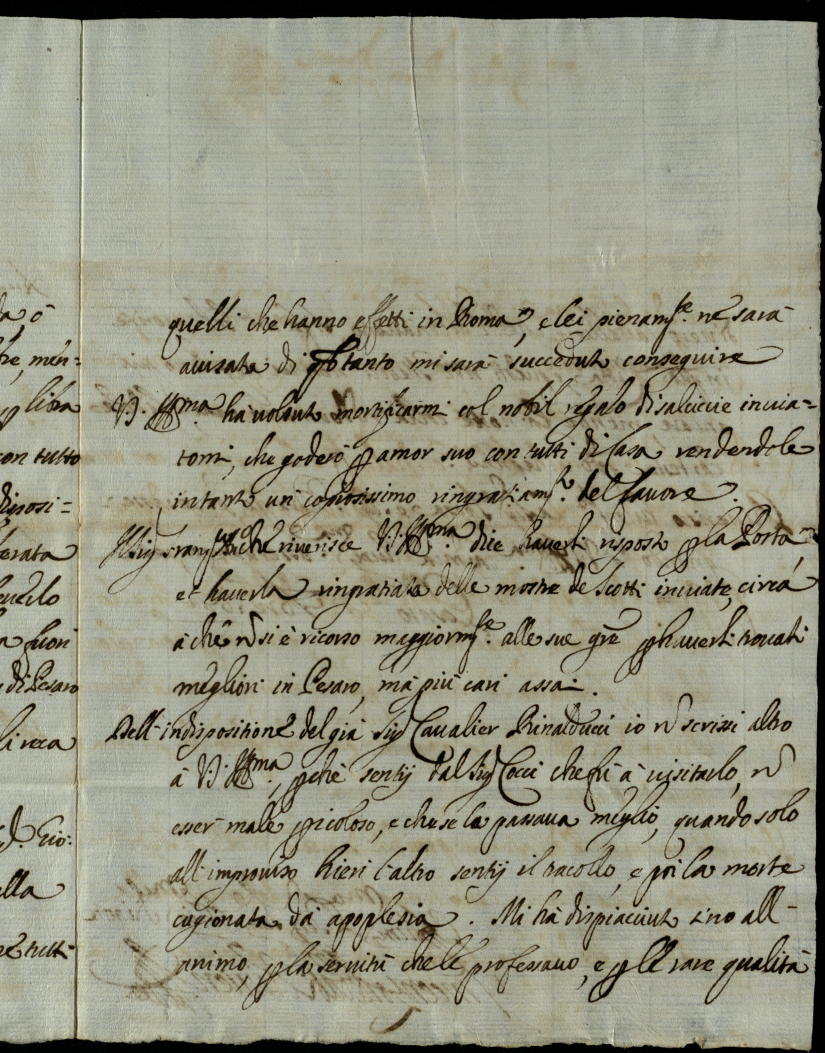 la, ò
tre, men=
p libra
con tutto
disposi=
fuori
di Pesaro
li reca
Gio:
ella
tutti
quelli che hanno effetti in Roma, e lei pienamte. ne sarà
auisata di qto tanto mi sarà succeduto conseguire
V. S. Illma ha voluto mortificarmi col nobil regalo di salciccie inuia=
tomi, che goderò p amor suo con tutti di Casa rendendole
intanto un copiosissimo ringratiamto. del fauore.
Il Sig riuerisce V. S. Illma dice hauerle risposto p la Posta,
et hauerla ringratiata delle mostre de Scotti inuiate, circa
à che nō si è ricorso maggiormte. alle sue grē p hauerli trouati
megliori in Pesaro, mà più cari assai.
Dell'indispositione del già Sig Caualier Rinalducci io nō scrissi altro
à V. S. Illma, pchè sentij dal Sig Cocci che fù à uisitarlo, nō
esser male pricoloso, e che se la passaua meglio, quando solo
all'improuiso hieri l'altro sentij il racollo, e poi la morte
cagionata da apoplesia. Mi hà dispiaciuto sino all'
animo, p la seruitù che le professauo, e p le rare qualità